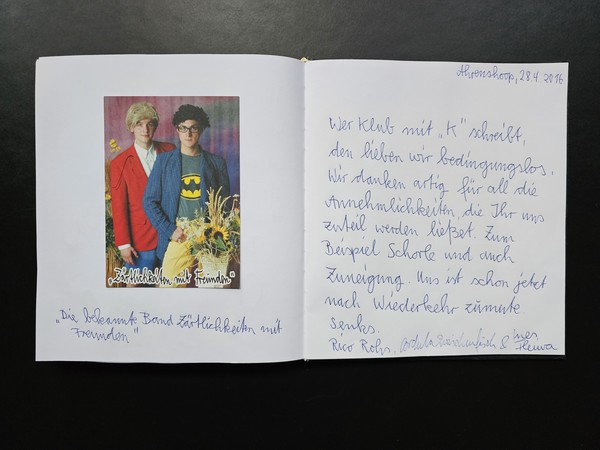 „Zärtlichkeiten mit Freunden“
„Die bekannte Band Zärtlichkeiten mit
Freunden“
Ahrenshoop, 28.4.2016
Wer Klub mit „K“ schreibt,
den lieben wir bedingungslos.
Wir danken artig für all die
Annehmlichkeiten, die Ihr uns
zuteil werden ließet. Zum
Beispiel Schorle und auch
Zuneigung. Uns ist schon jetzt
nach Wiederkehr zumute.
Senks.
Rico Rohs, Cordula Zwischenfisch & Ines
Fleiwa